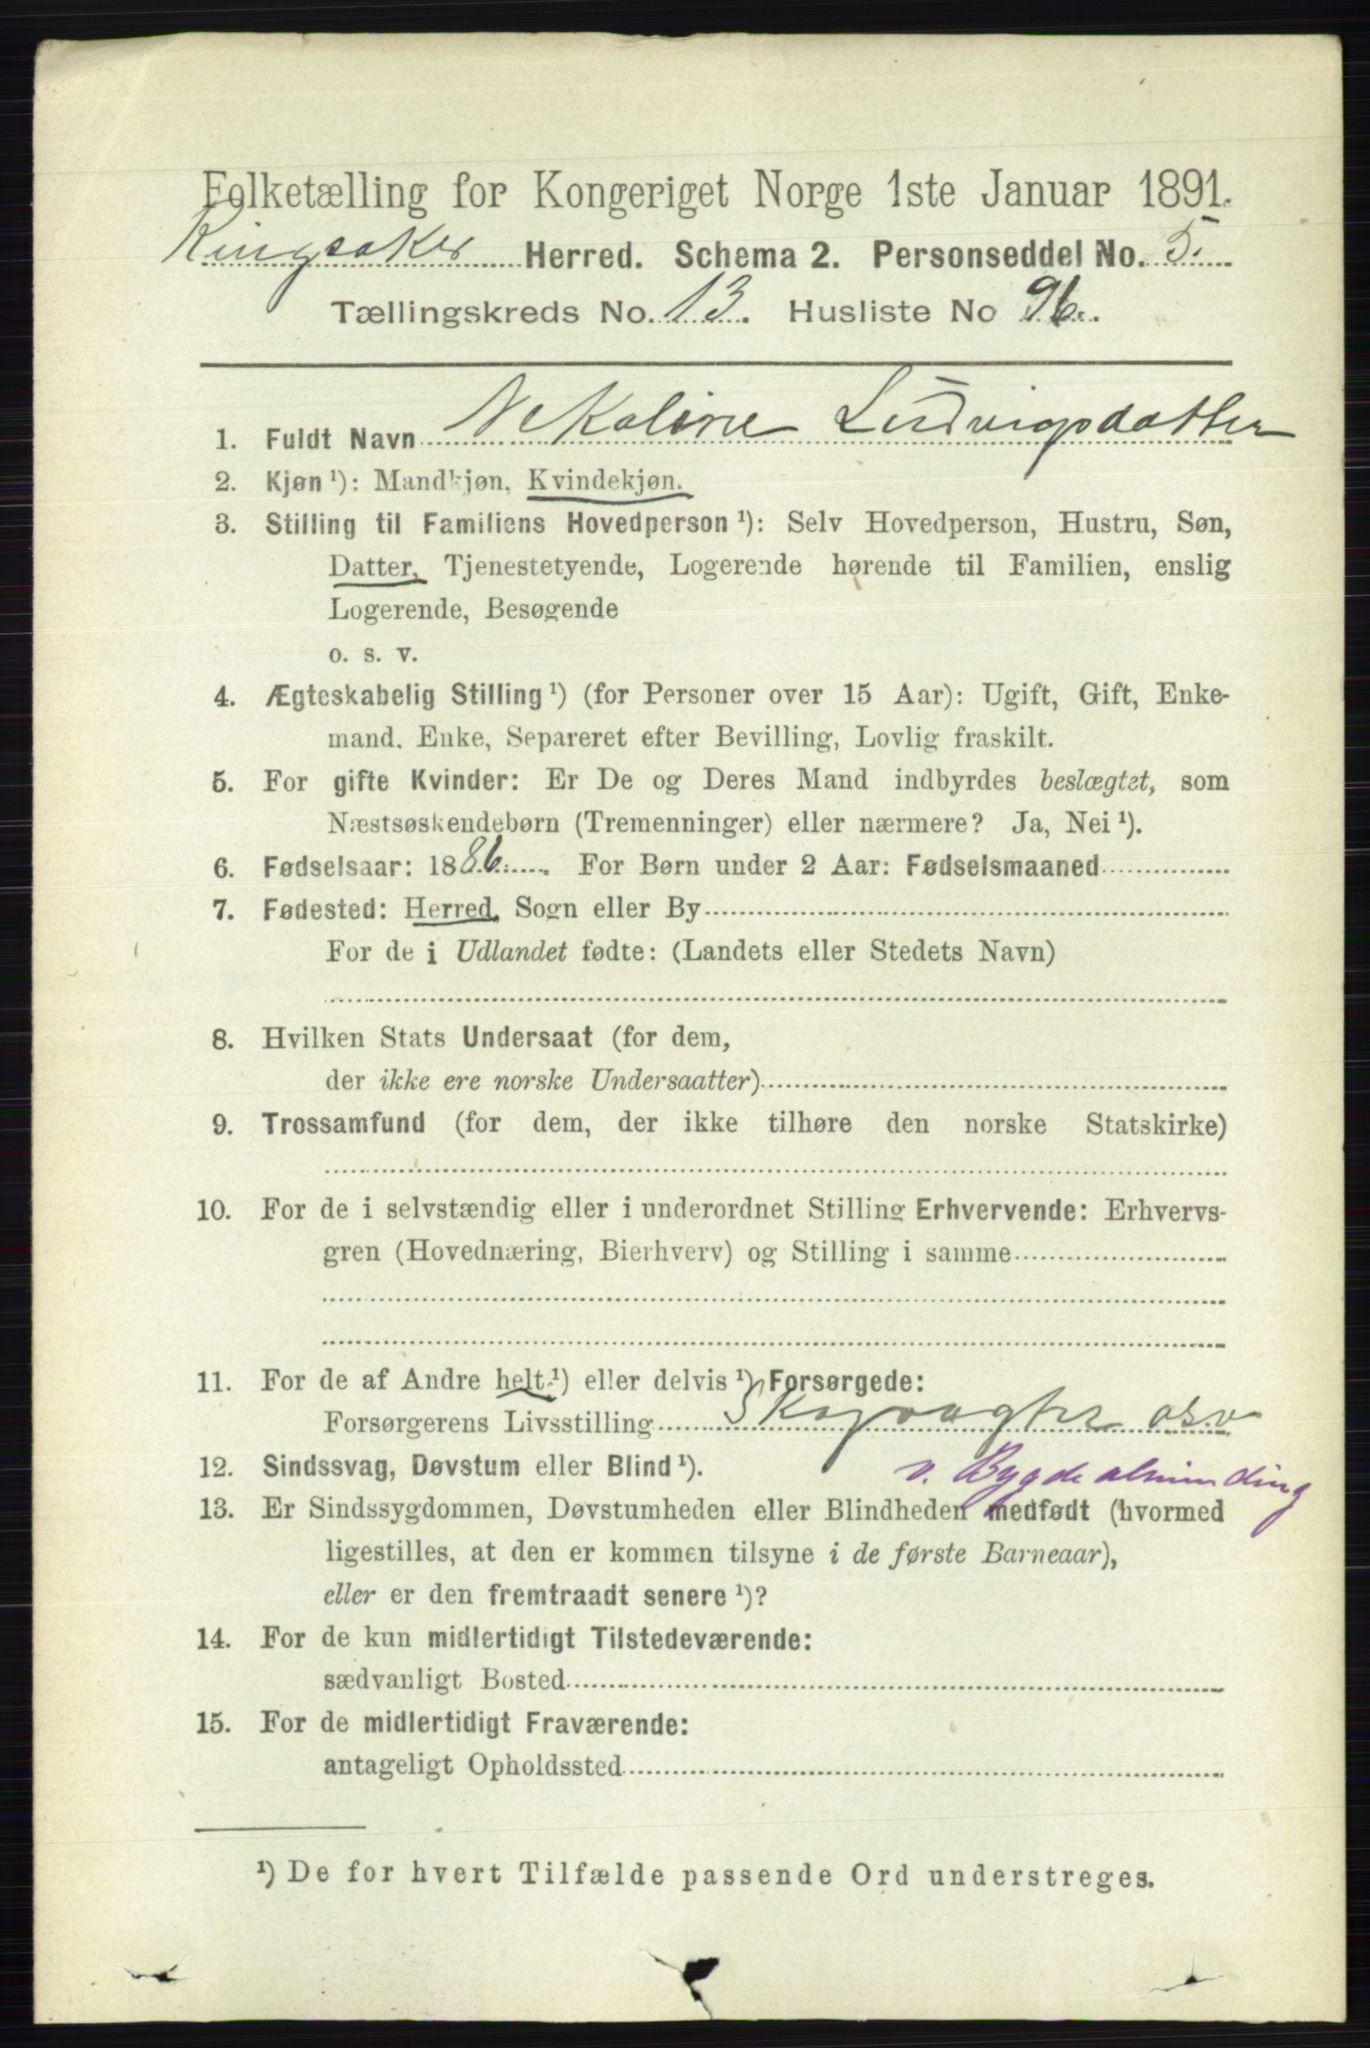 Folketælling for Kongeriget Norge 1ste Januar 1891.
Ringsaker Herred. Schema 2. Personseddel No. 5.
Tællingskreds No. 13. Husliste No 96.
1. Fuldt Navn Nekoline Ludvigsdatter
2. Kjøn ¹): Mandkjøn, Kvindekjøn.
3. Stilling til Familiens Hovedperson ¹): Selv Hovedperson, Hustru, Søn,
Datter, Tjenestetyende, Logerende hørende til Familien, enslig
Logerende, Besøgende
o. s. v.
4. Ægteskabelig Stilling ¹) (for Personer over 15 Aar): Ugift, Gift, Enke-
mand, Enke, Separeret efter Bevilling, Lovlig fraskilt.
5. For gifte Kvinder: Er De og Deres Mand indbyrdes beslægtet, som
Næstsøskendebørn (Tremenninger) eller nærmere? Ja, Nei ¹).
6. Fødselsaar: 1886. For Børn under 2 Aar: Fødselsmaaned
7. Fødested: Herred, Sogn eller By
For de i Udlandet fødte: (Landets eller Stedets Navn)
8. Hvilken Stats Undersaat (for dem,
der ikke ere norske Undersaatter)
9. Trossamfund (for dem, der ikke tilhøre den norske Statskirke)
10. For de i selvstændig eller i underordnet Stilling Erhvervende: Erhvervs-
gren (Hovednæring, Bierhverv) og Stilling i samme
11. For de af Andre helt ¹) eller delvis ¹) Forsørgede:
Forsørgerens Livsstilling Skogvogter osv
v. Bygdealminding
12. Sindssvag, Døvstum eller Blind ¹).
13. Er Sindssygdommen, Døvstumheden eller Blindheden medfødt (hvormed
ligestilles, at den er kommen tilsyne i de første Barneaar),
eller er den fremtraadt senere ¹)?
14. For de kun midlertidigt Tilstedeværende:
sædvanligt Bosted
15. For de midlertidigt Fraværende:
antageligt Opholdssted
¹) De for hvert Tilfælde passende Ord understreges.